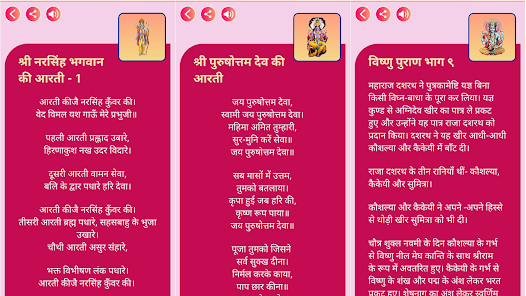 श्री नरसिंह भगवान
की आरती - 1
आरती कीजै नरसिंह कुँवर की।
वेद विमल यश गाऊँ मेरे प्रभुजी॥
पहली आरती प्रह्लाद उबारे,
हिरणाकुश नख उदर विदारे।
दूसरी आरती वामन सेवा,
बलि के द्वार पधारे हरि देवा।
आरती कीजै नरसिंह कुँवर की।
तीसरी आरती ब्रह्म पधारे, सहसबाहु के भुजा
उखारे।
चौथी आरती असुर संहारे,
भक्त विभीषण लंक पधारे।
आरती कीजै नरसिंह कुँवर की।
श्री पुरुषोत्तम देव की
आरती
जय पुरुषोत्तम देवा,
स्वामी जय पुरुषोत्तम देवा।
महिमा अमित तुम्हारी,
सुर-मुनि करें सेवा॥
जय पुरुषोत्तम देवा॥
सब मासों में उत्तम,
तुमको बतलाया।
कृपा हुई जब हरि की,
कृष्ण रूप पाया॥
जय पुरुषोत्तम देवा॥
पूजा तुमको जिसने
सर्व सुक्ख दीना।
निर्मल करके काया,
पाप छार कीना॥
विष्णु पुराण भाग ९
महाराज दशरथ ने पुत्रकामेष्टि यज्ञ बिना
किसी विघ्न-बाधा के पूरा कर लिया। यज्ञ
कुण्ड से अग्निदेव खीर का पात्र ले प्रकट
हुए और उन्होंने यह पात्र राजा दशरथ को
प्रदान किया। दशरथ ने यह खीर आधी-आधी
कौशल्या और कैकेयी में बाँट दी।
राजा दशरथ के तीन रानियाँ थीं- कौशल्या,
कैकेयी और सुमित्रा।
कौशल्या और कैकेयी ने अपने -अपने हिस्से
से थोड़ी खीर सुमित्रा को भी दी।
चैत्र शुक्ल नवमी के दिन कौशल्या के गर्भ
से विष्णु नील मेघ कान्ति के साथ श्रीराम
के रूप में अवतरित हुए। कैकेयी के गर्भ से
विष्णु के शंख और पद्म के अंश लेकर भरत
प्रकट हुए। शेषनाग का अंश लेकर स्वर्णिम